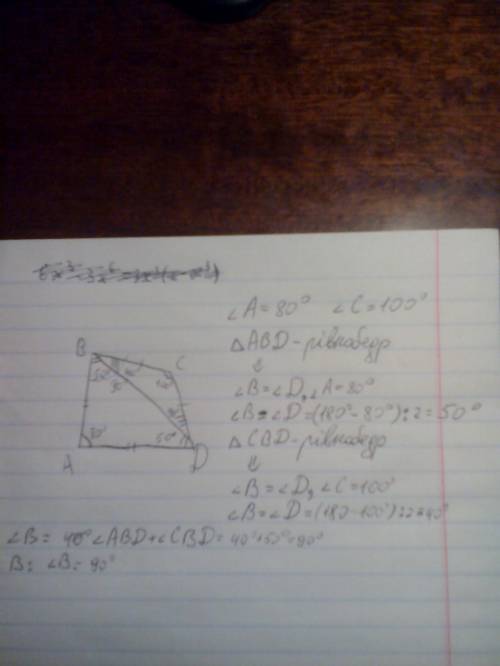 ∠A=80° ∠C=100°
△ABD-рівнобедр
⇓
∠B=∠D, ∠A=80°
∠B=∠D=(180°-80°):2=50°
△CBD-рівнобедр
⇓
∠B=∠D, ∠C=100°
∠B=∠D=(180-100°):2=40°
B C
50°
80° 50°
A D
∠B= ∠ABD+∠CBD=40°+50°=90°
В: ∠B=90°